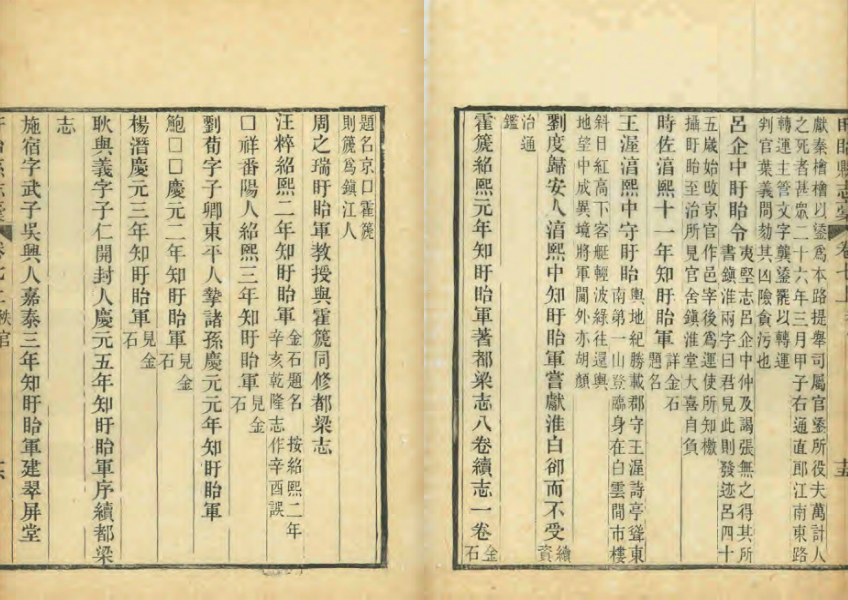 卷七上
獻秦檜檜以鋈為本路提舉司屬官鋈所役夫萬計人
之死者甚眾二十六年三月甲子右通直郎江南東路
轉運主管文字龔鋈罷以轉運
判官葉義問劾其凶險貪污也
呂企中盱眙令夷堅志呂企中仲及謁張無之得其所
書鎮淮兩字曰君見此則發迹呂四十
五歲始改京官作邑宰後為運使所知檄
攝盱眙至治所見官舍鎮淮堂大喜自負
時佐湻熙十一年知盱眙軍詳金石
題名
王渥湻熙中守盱眙輿地紀勝載郡守王渥詩亭聳東
南第一山登臨身在白雲間市樓
斜日紅高下客艇輕波綠往還輿
地望中成異境將軍閫外亦胡顏
劉度歸安人湻熙中知盱眙軍嘗獻淮白卻而不受續
資
治通
鑑
霍篪紹熙元年知盱眙軍著都梁志八卷續志一卷金
石
題名京口霍篪
則篪為鎮江人
周之瑞盱眙軍教授與霍篪同修都梁志
汪梓紹熙二年知盱眙軍金石題名 按紹熙二年
辛亥乾隆志作辛酉誤
□祥番陽人紹熙三年知盱眙軍見金
石
劉荀字子卿東平人摯諸孫慶元元年知盱眙軍
鮑□□慶元二年知盱眙軍見金
石
楊潛慶元三年知盱眙軍見金
石
耿與義字子仁開封人慶元五年知盱眙軍序續都梁
志
施宿字武子吳興人嘉泰三年知盱眙軍建翠屏堂
秩官